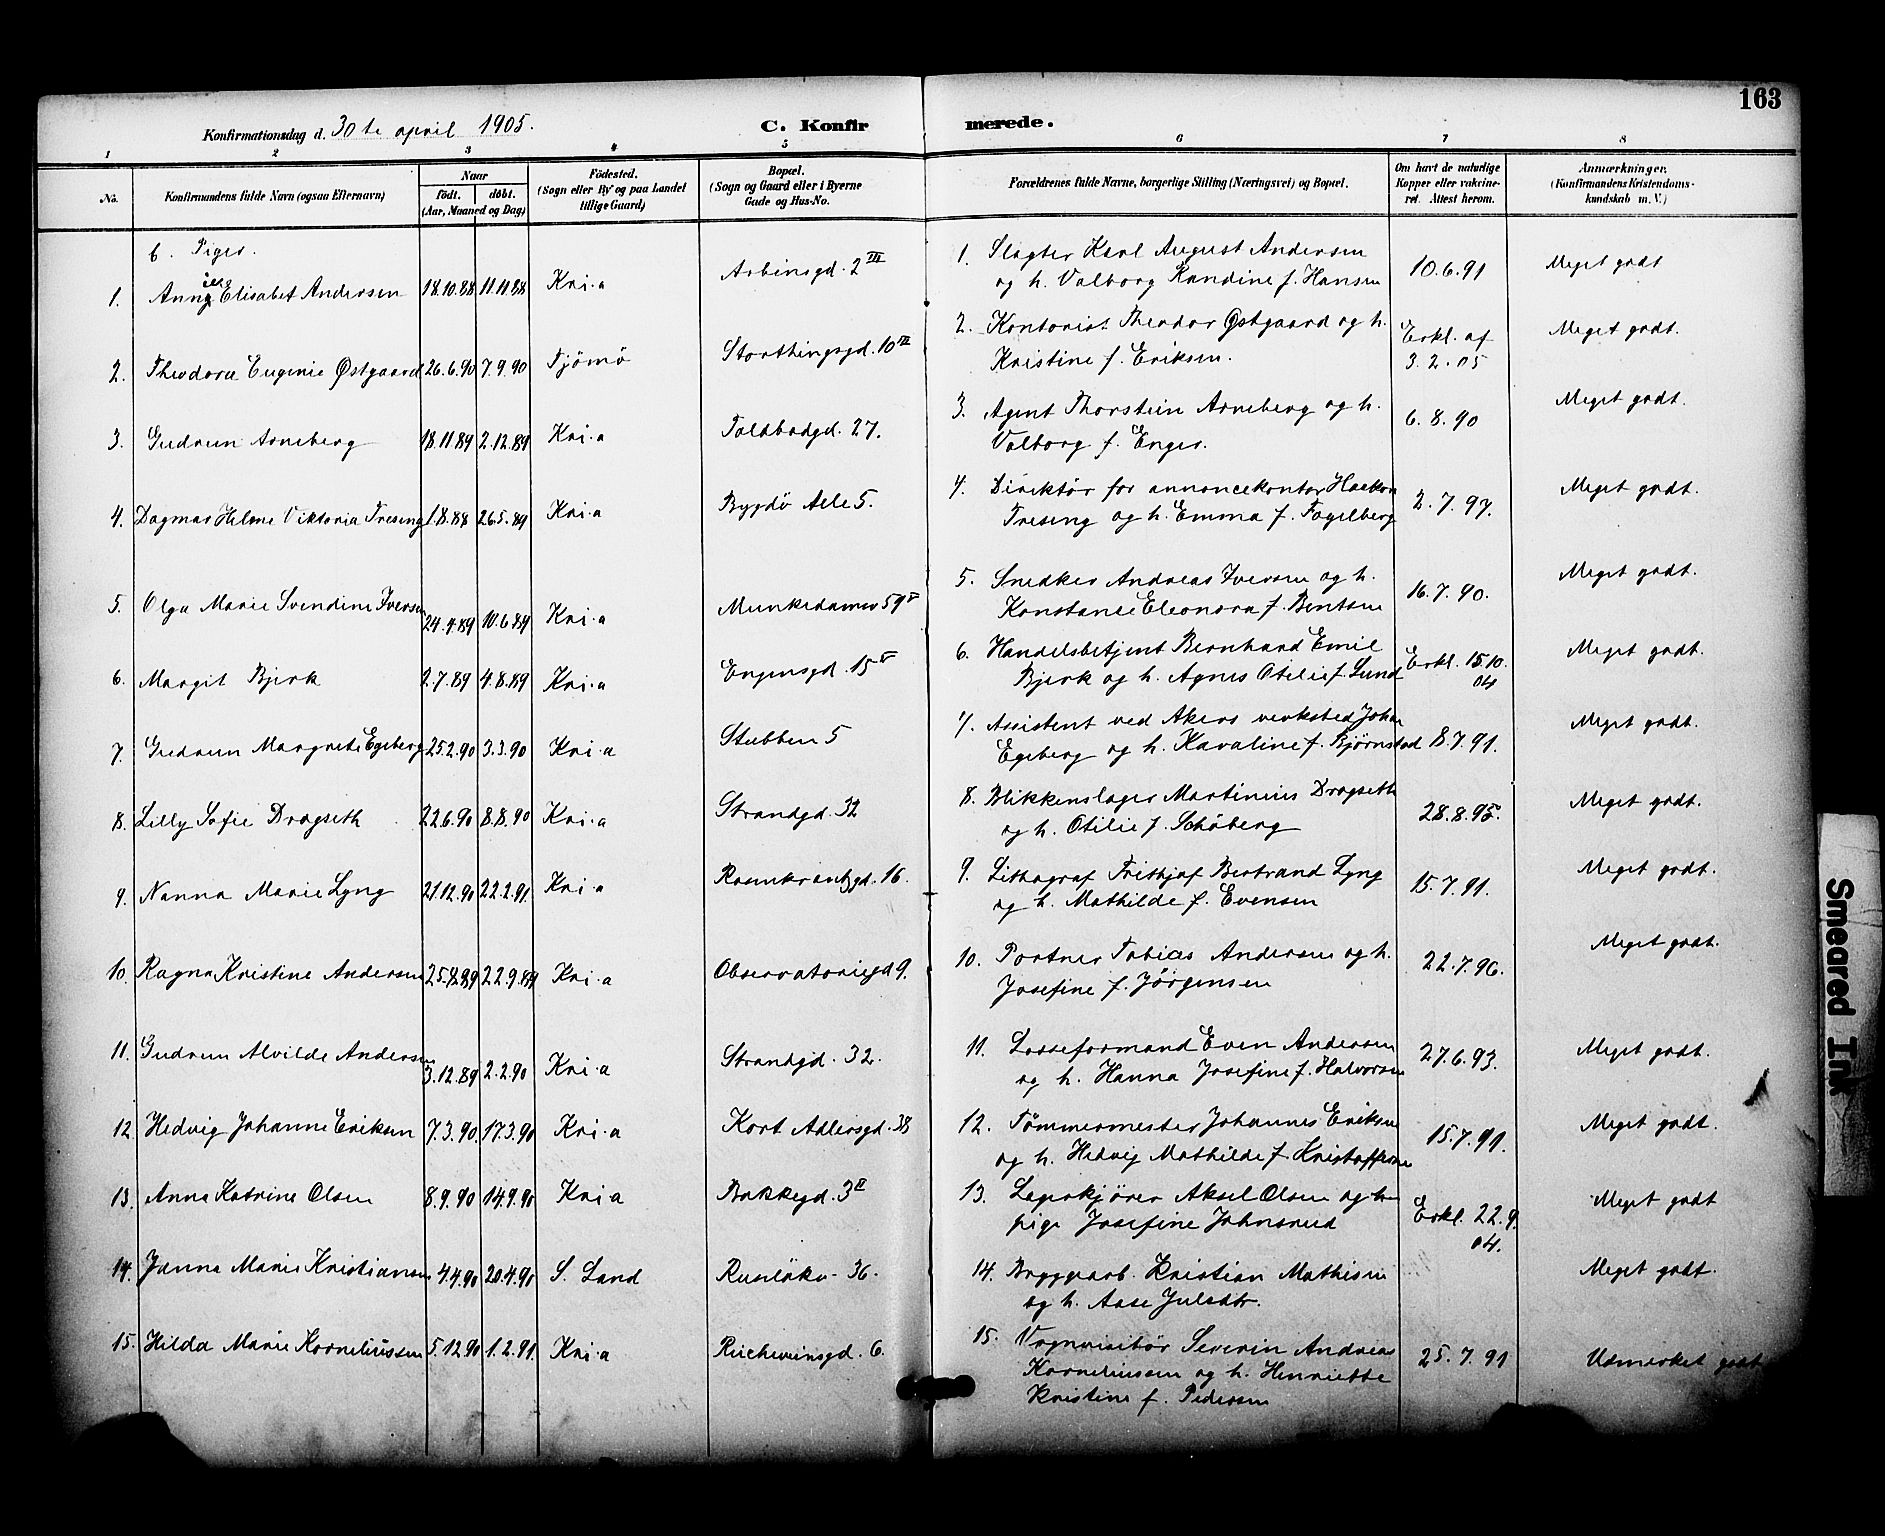 163
Konfirmationsdag d. 30te april 1905.
C. Konfirmerede.
1 2 3 4 5 6 7 8
No. Konfirmandens fulde Navn (ogsaa Efternavn) Naar født. døbt. (Aar, Maaned og Dag) Fødested. (Sogn eller By og paa Landet tillige Gaard) Bopæl. (Sogn og Gaard eller i Byerne Gade og Hus-No. Forældrenes fulde Navne, borgerlige Stilling (Næringsvei) og Bopæl. Om havt de naturlige Kopper eller vakcineret. Attest herom. Anmærkninger. (Konfirmandens Kristendomskundskab m. V.)
b. Piger.
1. Anna Elisabet Andersen 18.10.88 11.11.88 Kri.a Arbinsgd. 2 III 1. Slagter Karl August Andersen 10.6.91 Meget godt
og h. Valborg Randine f. Hansen
2. Theodora Eugenie Østgaard 26.6.90 7.9.90 Tjömö Storthingsgd. 10 2. Kontorist Theodor Østgaard og h. Erkl. af Meget godt.
Kristine f. Eriksen. 3.2.05
3. Gudrun Arneberg 18.11.89 2.12.89 Kri.a Toldbodgd. 27. 3. Agent Thorstein Arneberg og h. 6.8.90 Meget godt.
Valborg f. Enger.
4. Dagmar Helene Viktoria Fresing 1.8.88 26.5.89 Kri.a Bygdö Alle 5. 4. Direktör for annoncekontor Haakon 2.7.97. Meget godt.
Fresing og h. Emma f. Fogelberg
5. Olga Marie Svendine Iversen 24.4.89 10.6.89 Kri.a Munkedamsv 59 5. Snedker Andreas Iversen og h. 16.7.90. Meget godt.
Konstanse Eleonora f. Bentsen
6. Margit Bjerk 2.7.89 4.8.89 Kri.a Engensgd. 15 6. Handelsbetjent Bernhard Emil Erkl. 15.10. Meget godt.
Bjerk og h. Agnes Otilie f. Lund 04
7. Gudrun Margrete Egeberg 25.2.90 3.3.90 Kri.a Stubben 5 7. Assistent ved Akers verksted Johan Meget godt.
Egeberg og h. Karaline f. Bjørnstad 8.7.91.
8. Lilly Sofie Dragseth 22.6.90 8.8.90 Kri.a Strandgd. 32 8. Blikkenslager Martinius Dragseth 28.8.95. Meget godt.
og h. Otilie f. Schöberg
9. Nanna Marie Lyng 21.12.90 22.2.91. Kri.a Rosenkrantzgd. 16. 9. Lithograf Frithjof Bertrand Lyng 15.7.91. Meget godt.
og h. Mathilde f. Evensen
10. Ragna Kristine Andersen 25.8.89 22.9.89 Kri.a Observatoriegd 9. 10. Portner Tobias Andersen og h. 22.7.96. Meget godt.
Josefine f. Jörgensen
11. Gudrun Alvilde Andersen 3.12.89 2.2.90 Kri.a Strandgd. 32. 11. Losseformand Even Andersen 27.6.93. Meget godt.
og h. Hanna Josefine f. Halvorsen
12. Hedvig Johanne Eriksen 7.3.90. 17.3.90 Kri.a Kort Adlersgd. 38 12. Tömmermester Johannes Eriksen 15.7.91. Meget godt.
og h. Hedvig Mathilde f. Kristoffersen
13. Anna Katrine Olsen 8.9.90 14.9.90 Kri a Bakkegd. 3 II 13. Aksel Olsen og Erkl. 22.9. Meget godt
pige Josefine Johnsrud 04.
14. Janna Marie Kristiansen 4.4.90 20.4.90 S. Land Ruselökv. 36. 14. Bryggearb. Kristian Mathisen Meget godt.
og h. Aase Julsdtr.
15. Hilda Marie Korneliussen 5.12.90 1.2.91. Kri.a Richeveinsgd. 6. 15. Vognvisitör Severin Andreas 25.7.91 Udmerket godt
Korneliussen og h. Henriette
Kristine f. Pedersen
Smeared Ink